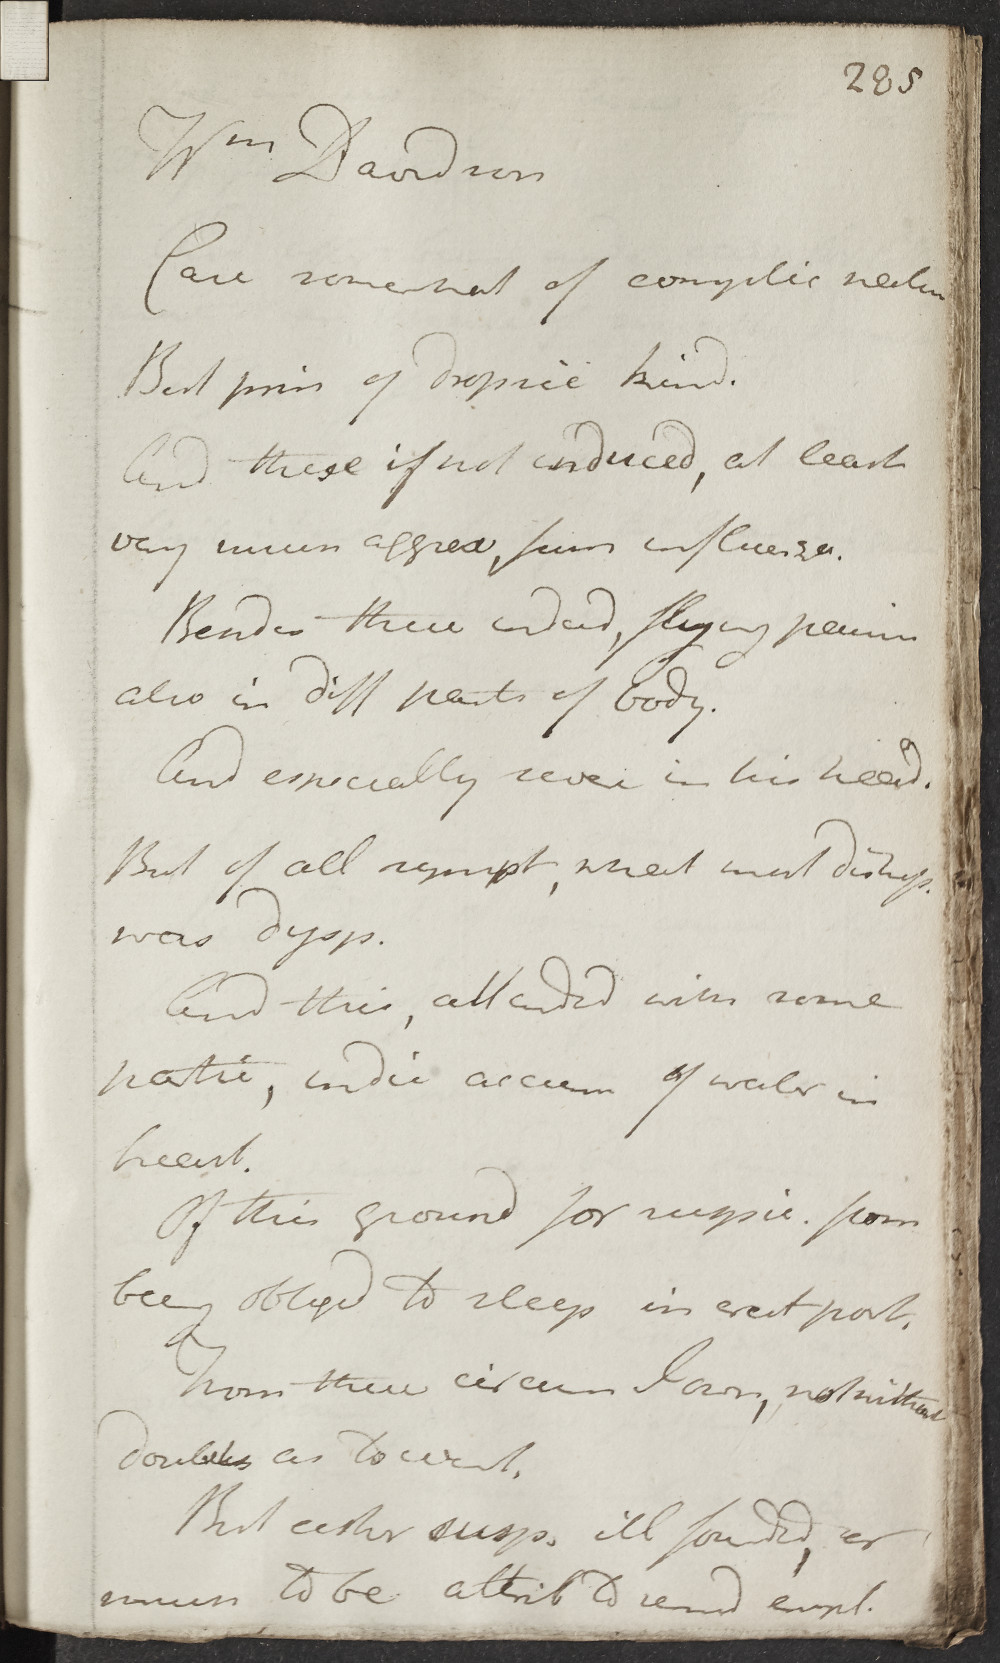 285
Wm Davidson
Case somewhat of complic natur
But prin of dropsic kind.
And these if not induced, at least
very much aggrav, from influenza.
Besides these indeed, flying pains
also in diff parts of body.
And especially sever in his head.
But of all sympt, what most distress.
was dysp.
And this, attended with some
partic, indic accum of water in
breast.
Of this ground for suspic. from
being obliged to sleep in erect post.
From these circum I own, not without
doubts as to event.
But either susp. ill founded, or
much to be attrib to remd empl.